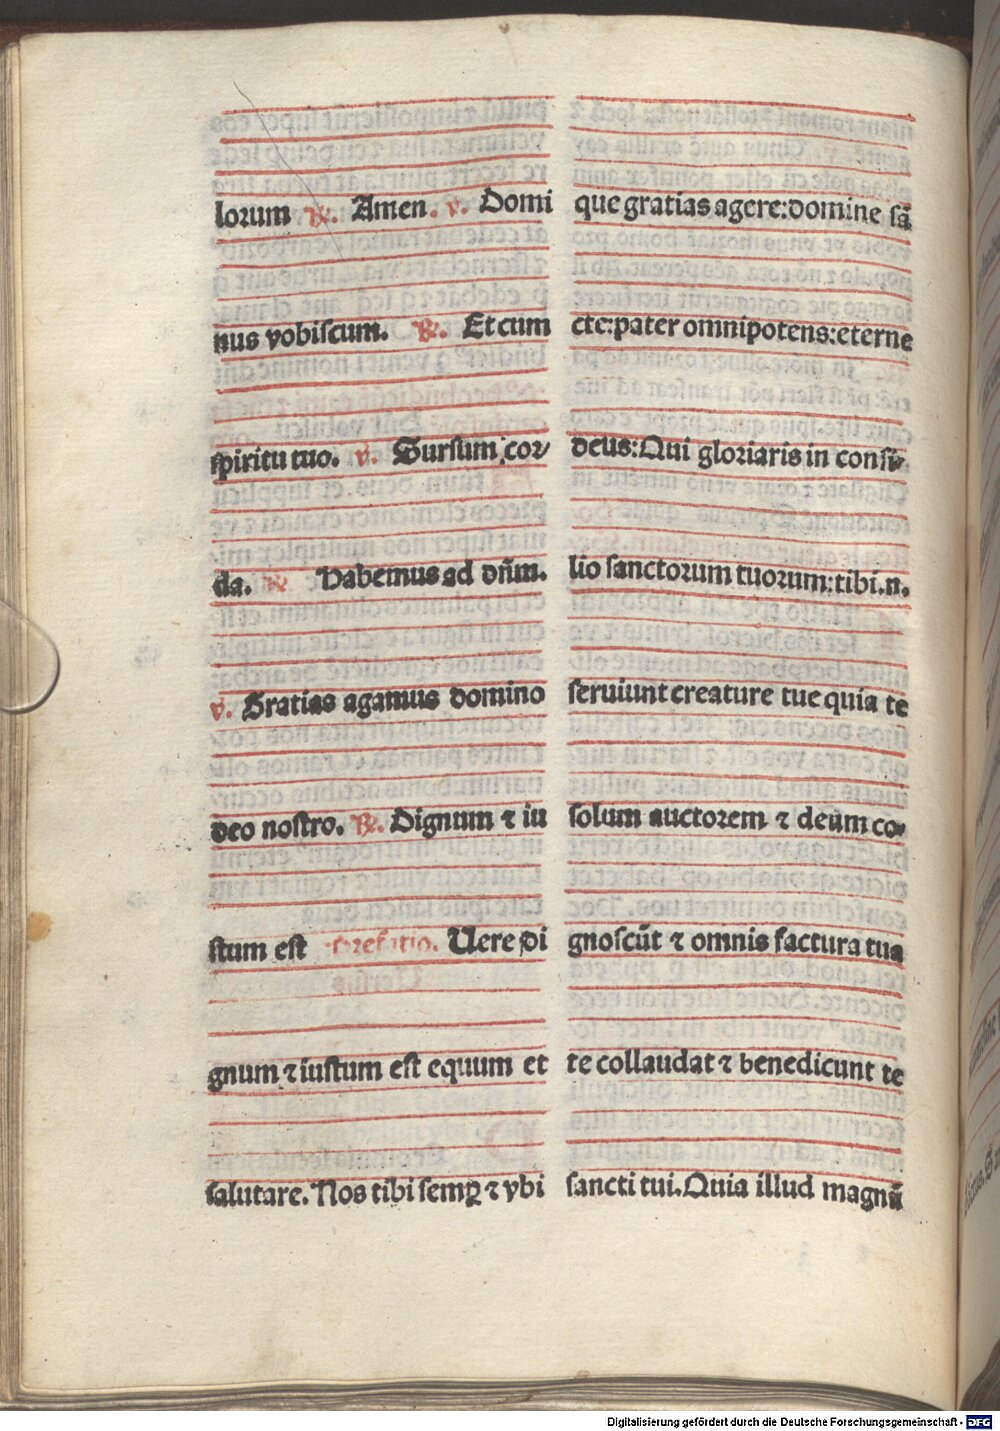 lorum ℟. Amen. v. Domi
nus vobiscum. ℟. Et cum
spiritu tuo. v. Sursum cor/
da. ℟ Habemus ad dñm.
v. Gratias agamus domino
deo nostro. ℟. Dignum ⁊ iu
stum est prefatio. Uere di
gnum ⁊ iustum est equum et
salutare. Nos tibi semꝑ ⁊ vbi
que gratias agere: domine sā
cte: pater omnipotens: eterne
deus: Qui gloriaris in consi/
lio sanctorum tuorum: tibi. n.
seruiunt creature tue quia te
solum auctorem ⁊ deum co/
gnoscūt ⁊ omnis factura tua
te collaudat ⁊ benedicunt te
sancti tui. Quia illud magnū
Digitalisierung gefördert durch die Deutsche Forschungsgemeinschaft - DFG